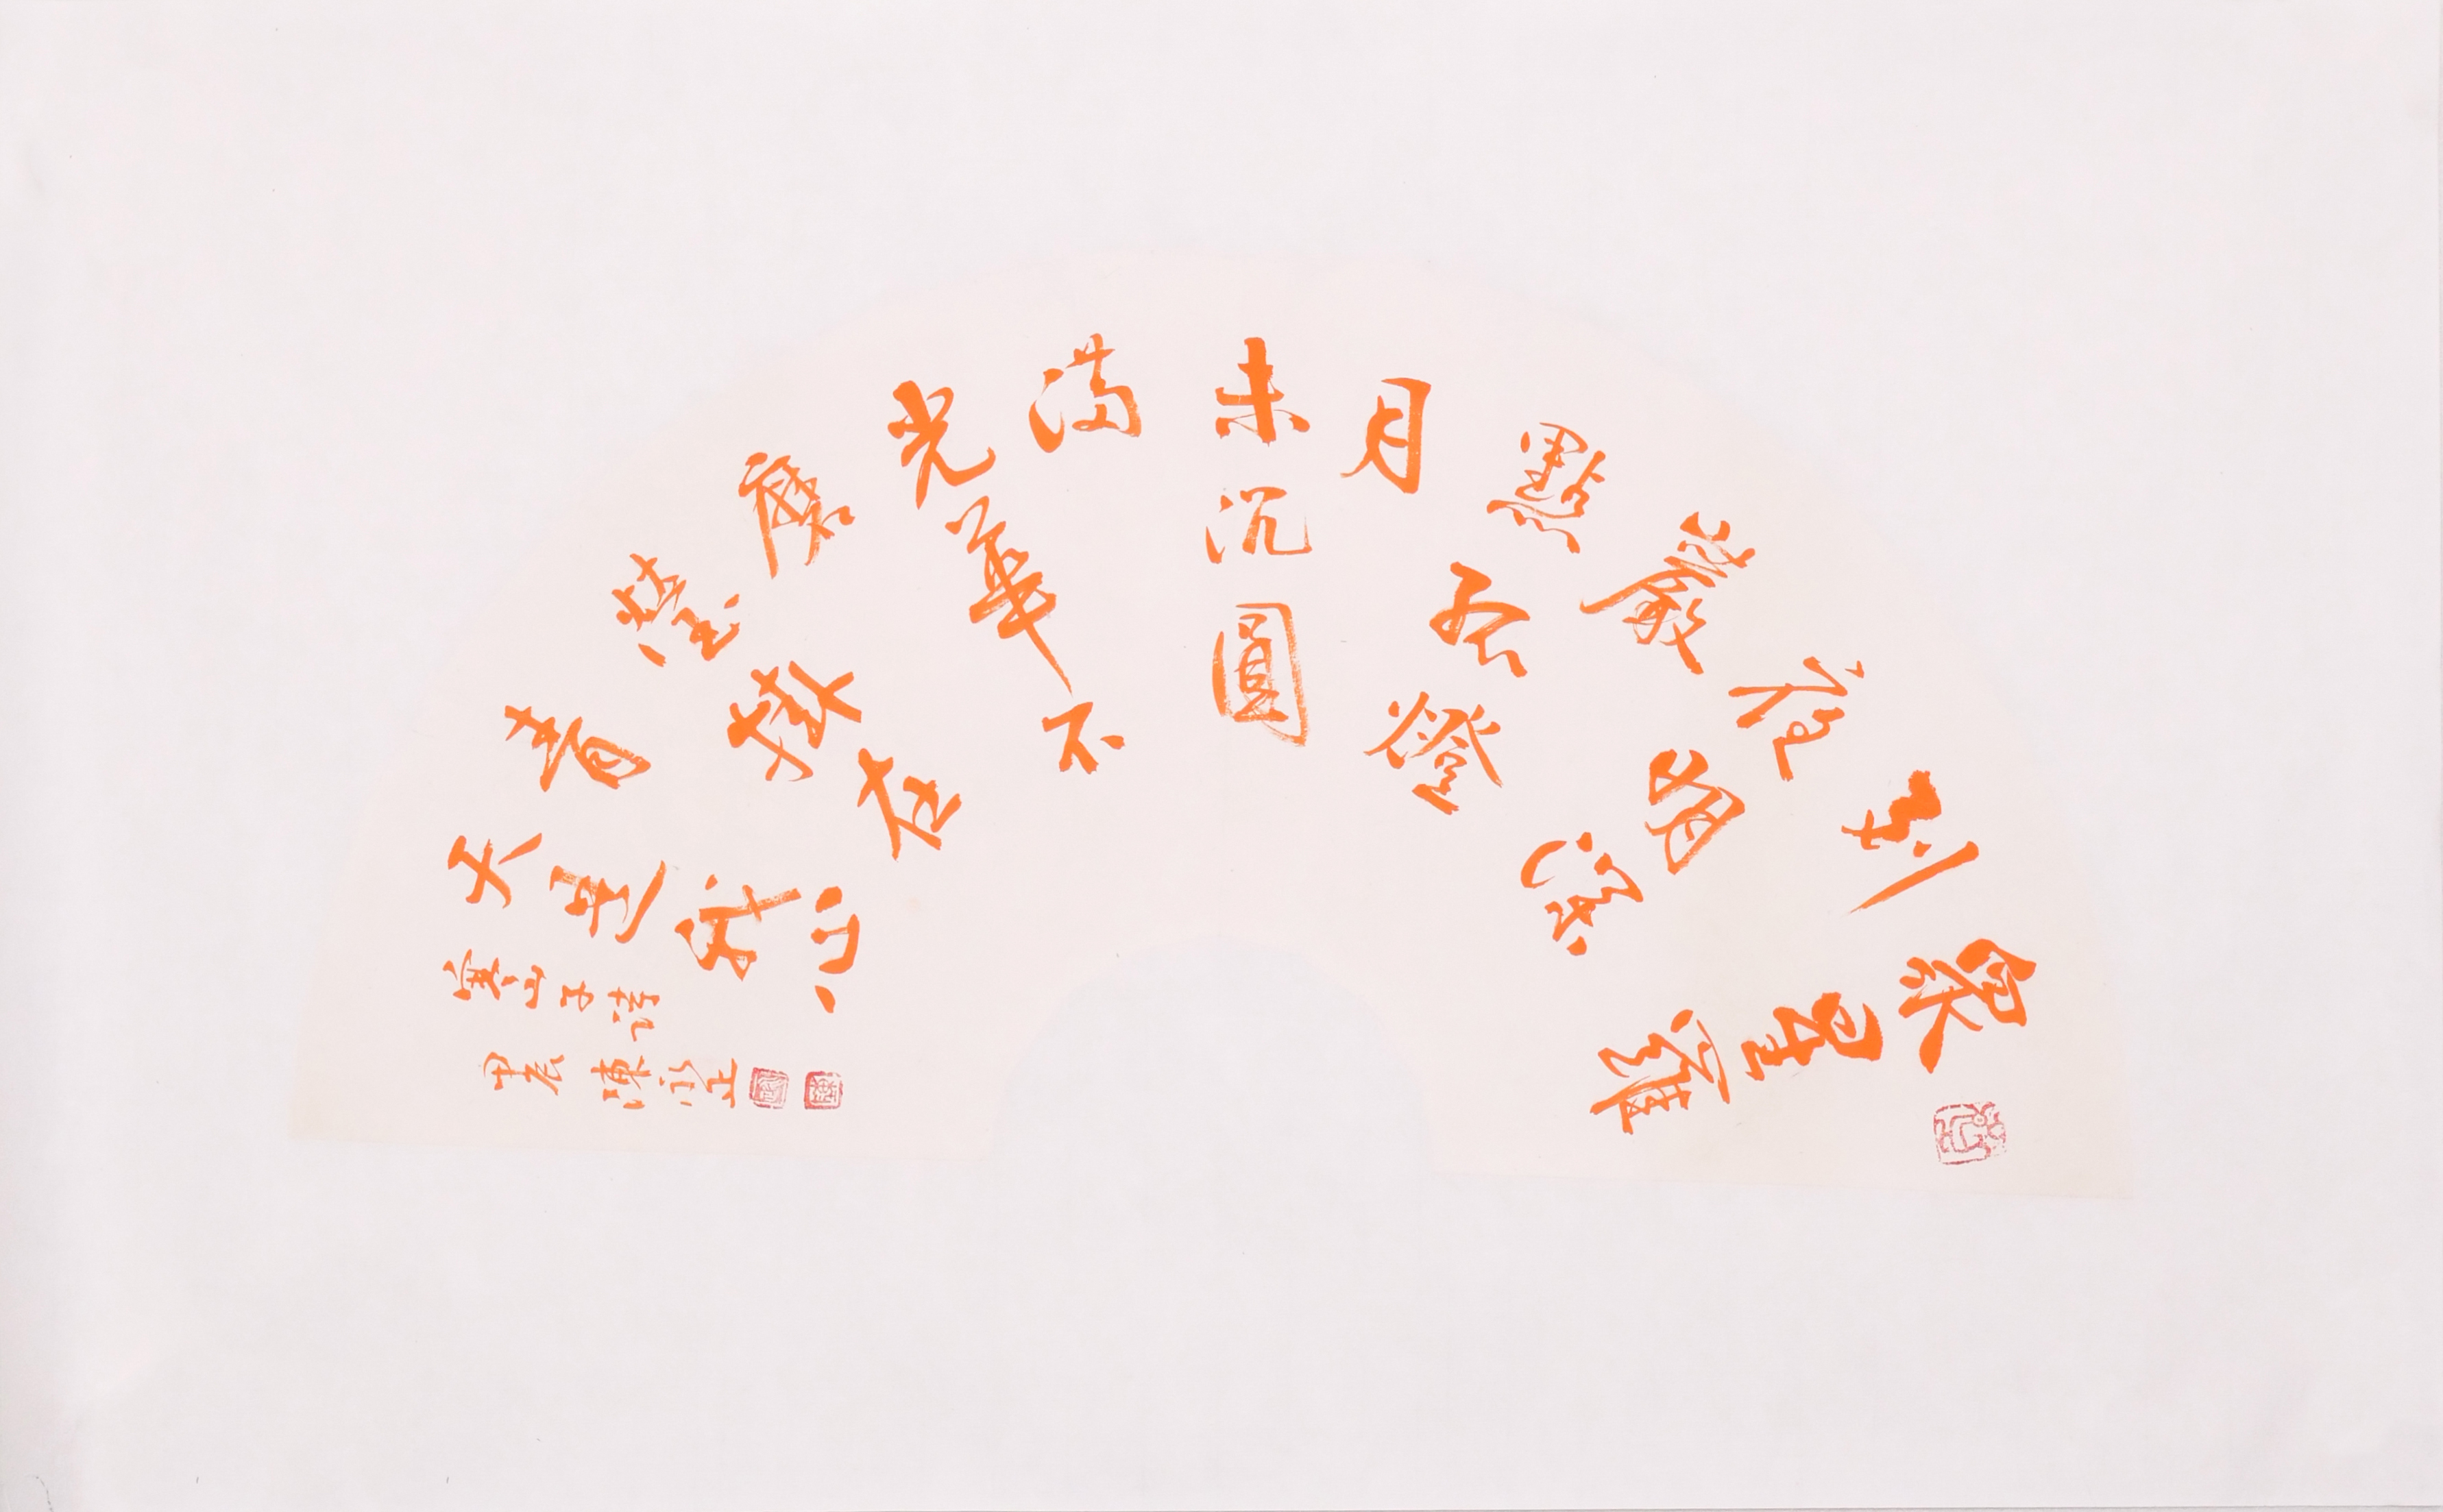 眾星羅
列
夜明深
巖
點孤燈
月
未沉圓
滿
光華不
磨
瑩掛在
青
天是我心
寒山子詩
甲辰陳永正